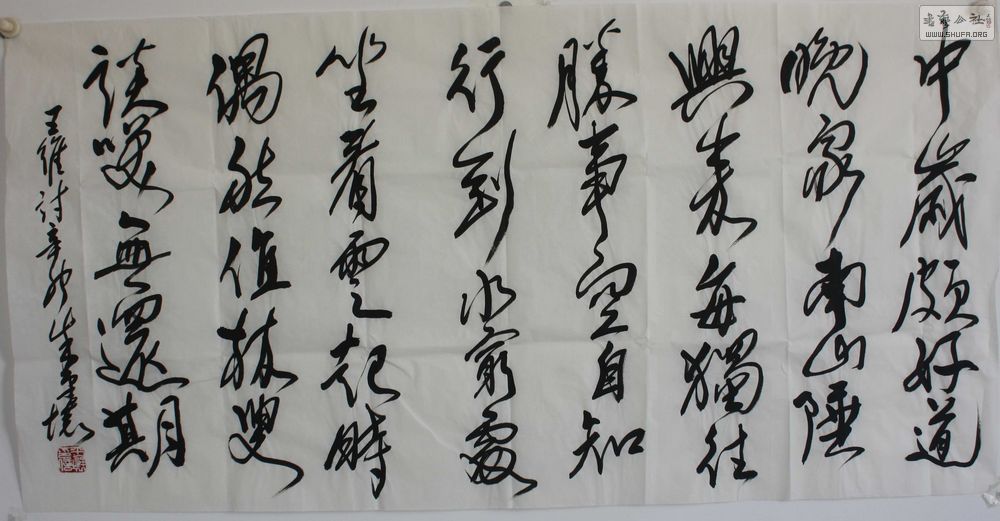 中歲頗好道
晚家南山陲
興來每獨往
勝事空自知
行到水窮處
坐看雲起時
偶然值林叟
談笑無還期
王維詩辛卯
書法公社
WWW.SHUFA.ORG